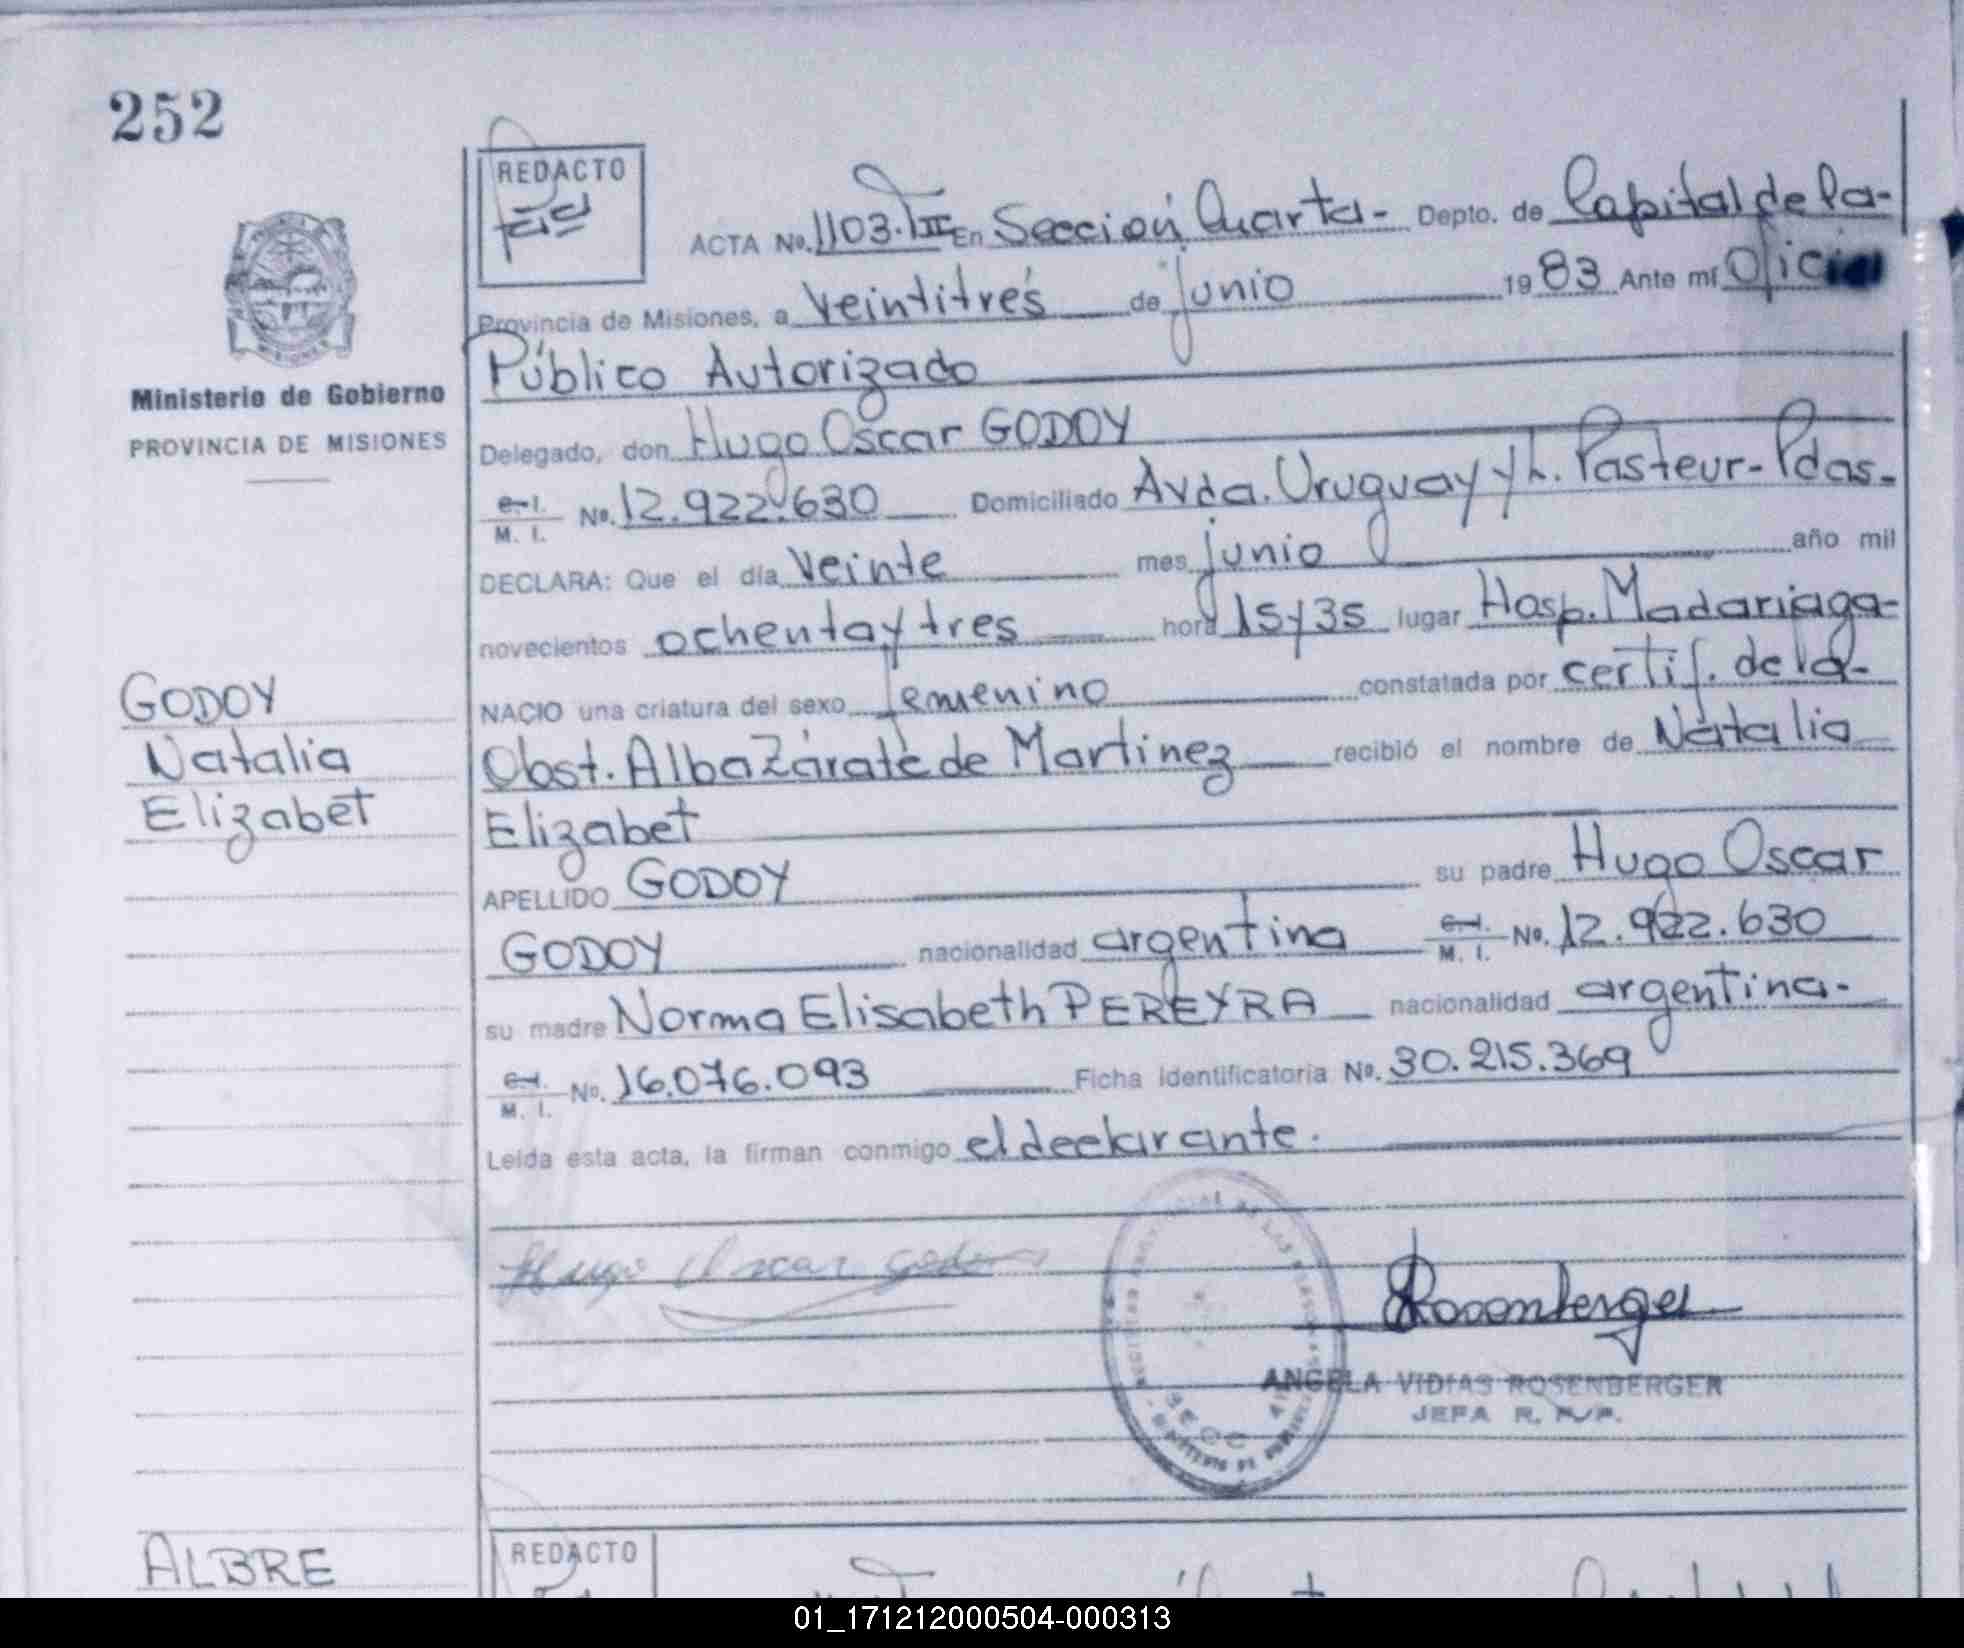 252
REDACTO
ACTA No. 1103. TIII En Sección Cuarta- Depto. de Capital de la-
Provincia de Misiones, a veintitrés de junio 1983 Ante mí Oficial
Público Autorizado
Ministerio de Gobierno
PROVINCIA DE MISIONES
Delegado, don Hugo Oscar GODOY
C.I. M. I. No. 12.922.630 Domiciliado Avda. Uruguay y L. Pasteur-Pdas-
DECLARA: Que el día veinte mes junio año mil
novecientos ochenta y tres hora 15 y 35 lugar Hosp. Madariaga-
NACIO una criatura del sexo femenino constatada por certif. de la-
Obst. Alba Zárate de Martinez recibió el nombre de Natalia
Elizabet
GODOY
Natalia
Elizabet
APELLIDO GODOY su padre Hugo Oscar
GODOY nacionalidad argentina C.I. M. I. No. 12.922.630
su madre Norma Elisabeth PEREYRA nacionalidad argentina.-
C.I. M. I. No. 16.076.093 Ficha identificatoria No. 30.215.369
Leída esta acta, la firman conmigo el declarante.
Hugo Oscar Godoy
Rosenberger
ANGELA VIDIAS ROSENBERGER
JEFA R. P.
ALBRE
REDACTO
01_171212000504-000313